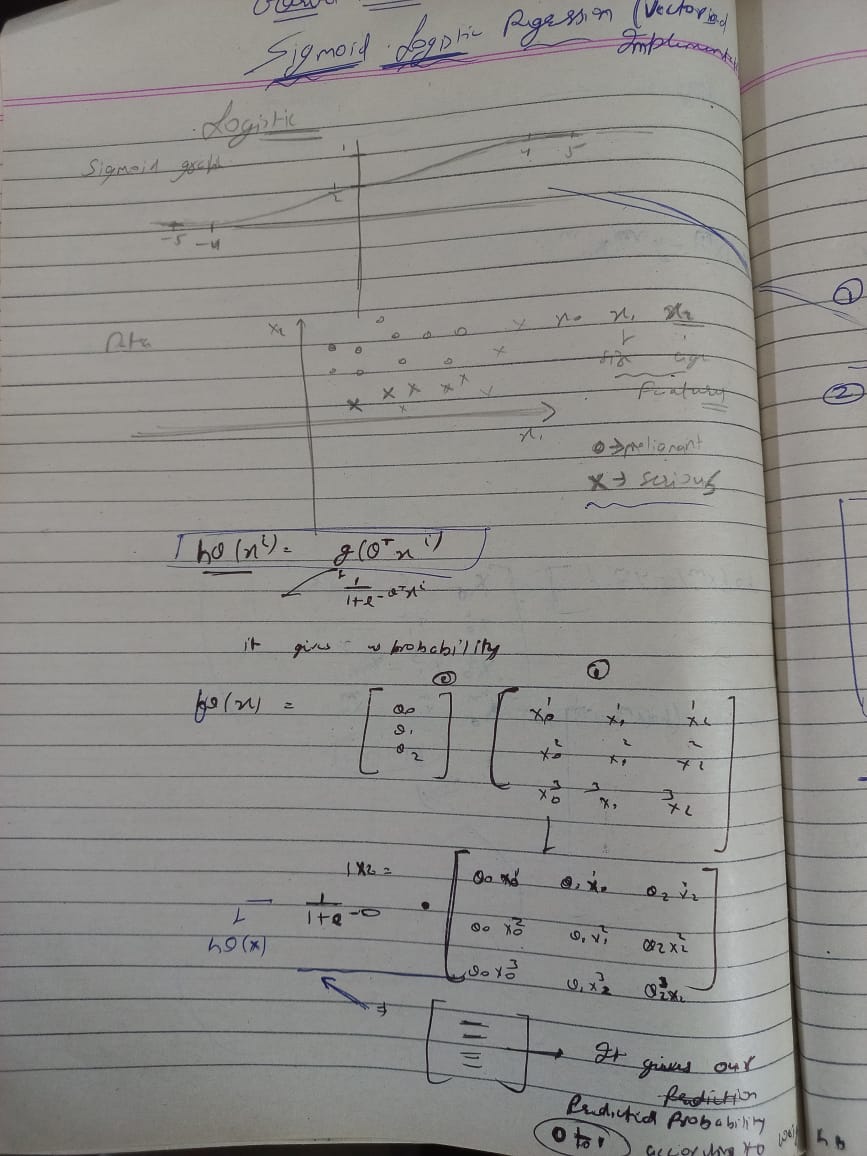 Sigmoid Logistic Regression (Vectorized
Implementat
Logistic
Sigmoid graph
1
4 5
1/2
-5 -4
x2 x0 x1 x2
size age
Features
x1
0 →
X → serious
hθ(x^i) = g(θ^T x^i)
1/(1+e^-θ^T x^i)
it gives probability
hθ(x) = [θ0 θ1 θ2] [x0^1 x1^1 x2^1
x0^2 x1^2 x2^2
x0^3 x1^3 x2^3]
1x2 =
1/(1+e^-θ) • [θ0 x0^1 θ1 x1^1 θ2 x2^1
θ0 x0^2 θ1 x1^2 θ2 x2^2
θ0 x0^3 θ1 x2^3 θ2^3 x2]
hθ(x)
→ It gives our
Prediction
Predicted Probability
0 to 1 according to
①
②